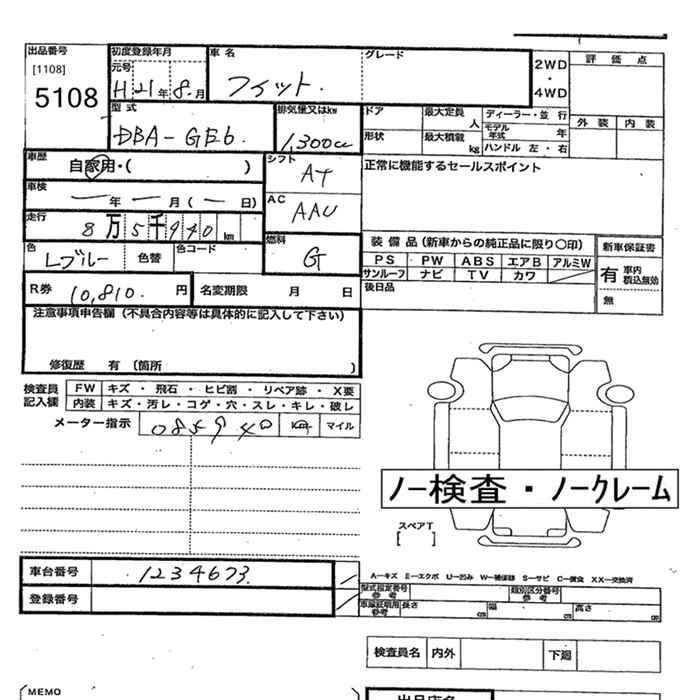 出品番号 [1108] 5108
初度登録年月 元号 H21年8.月
車名 フィット.
グレード
2WD・4WD
評価点
外装 内装
型式 DBA-GE6.
排気量又はkw 1,300cc
ドア 最大定員 人
ディーラー・並行
モデル年式 年
形状 最大積載 kg
ハンドル 左・右
車歴 自家用・( )
シフト AT
正常に機能するセールスポイント
車検 ー年ー月(ー日)
AC AAU
走行 8万5千940km
色 Lブルー 色替 色コード
燃料 G
装備品(新車からの純正品に限り〇印)
新車保証書
PS PW ABS エアB アルミW
サンルーフ ナビ TV カワ
有 車内積込無効
無
R券 10,810.円
名変期限 月 日
後日品
注意事項申告欄(不具合内容等は具体的に記入して下さい)
修復歴 有(箇所 )
検査員記入欄
FW キズ・飛石・ヒビ割・リペア跡・X要
内装 キズ・汚レ・コゲ・穴・スレ・キレ・破レ
メーター指示 085940 km マイル
ノー検査・ノークレーム
スペアT
[ ]
車台番号 1234673
登録番号
Aーキズ Eーエクボ Uー凹み Wー補修跡 Sーサビ Cー腐食 XXー交換済
型式指定番号参考 類別区分番号参考
車庫証明用参考 長さ cm 幅 cm 高さ cm
検査員名 内外 下廻
MEMO
出品店名